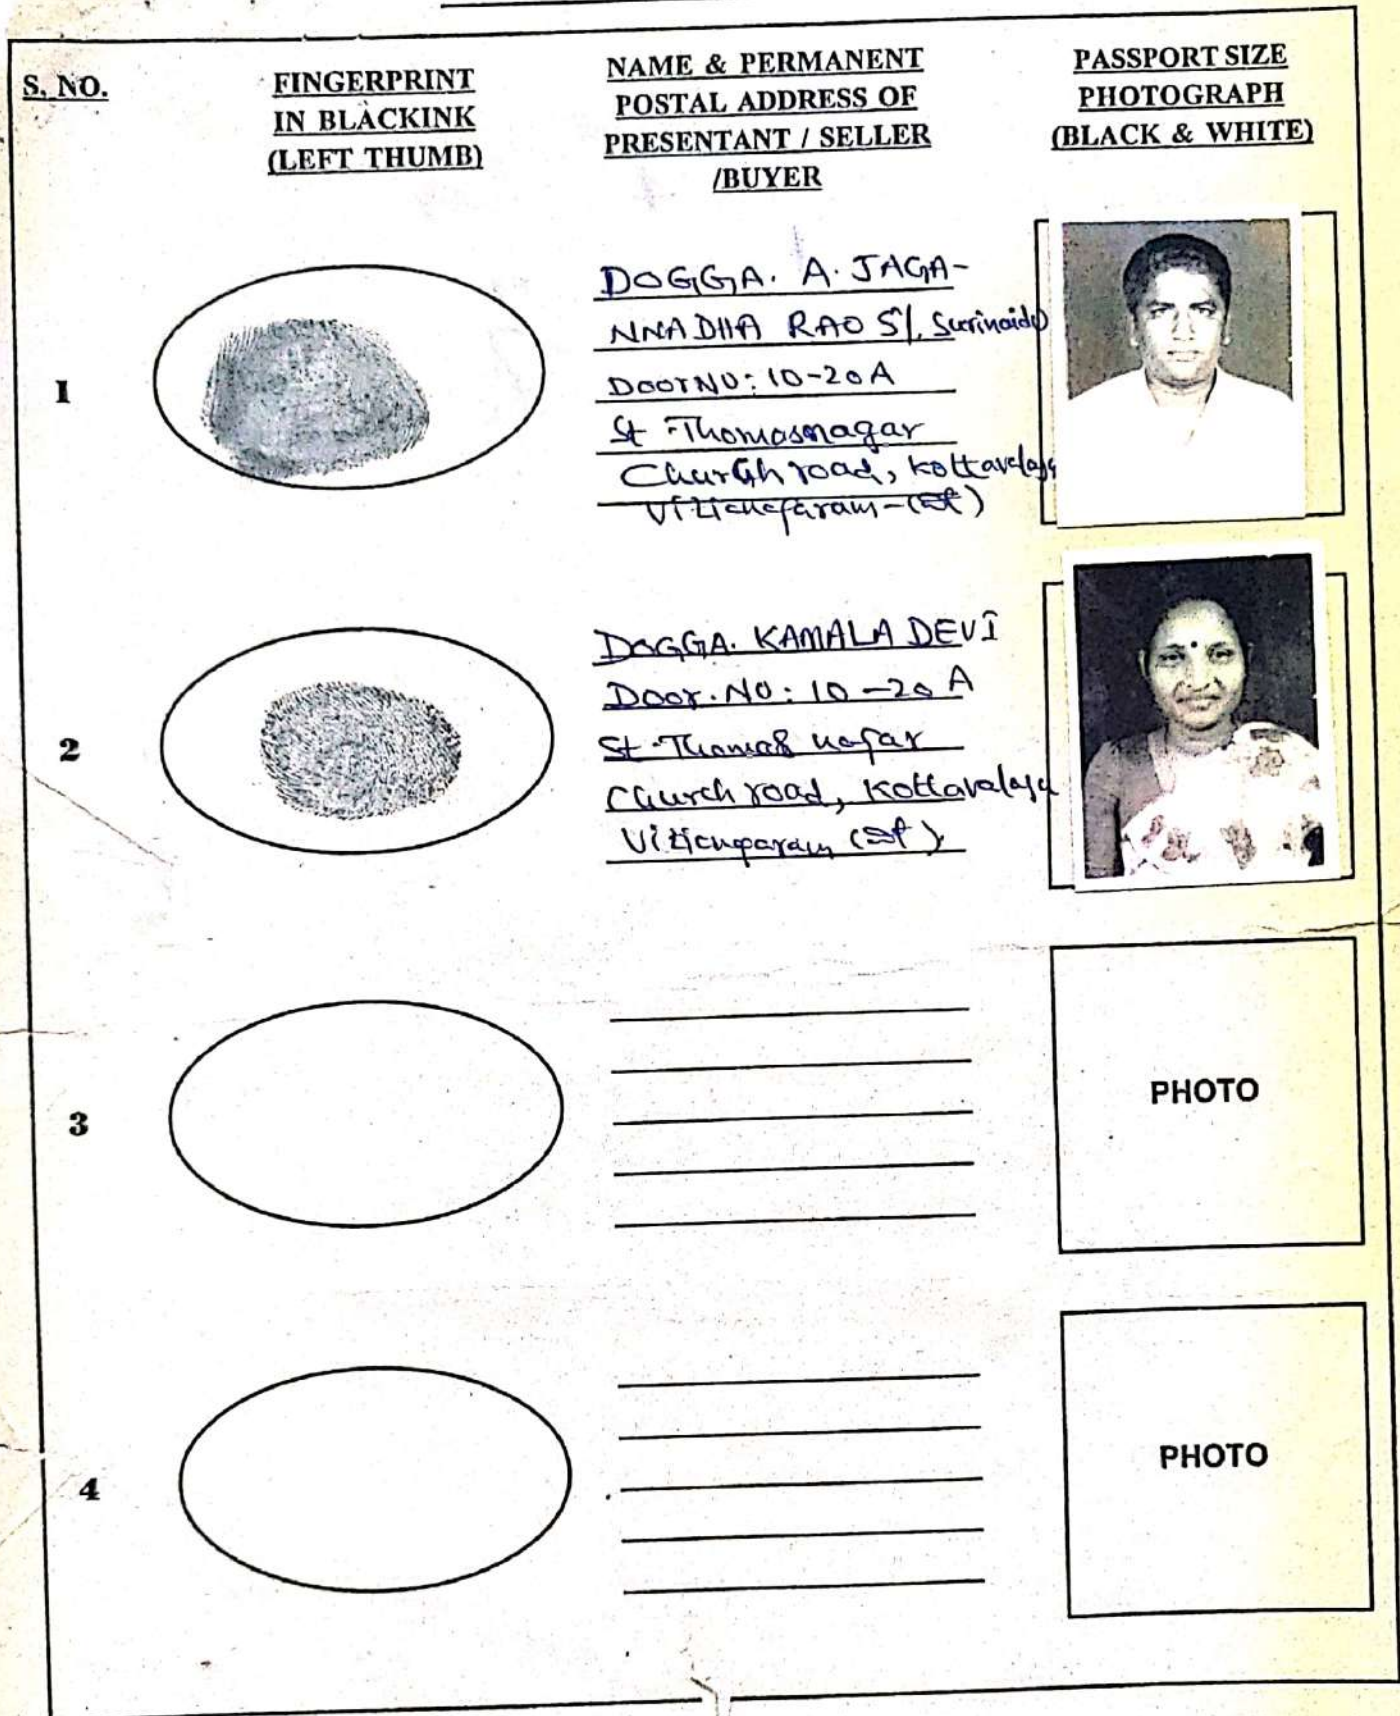 S. NO.
FINGERPRINT
IN BLACKINK
(LEFT THUMB)
NAME & PERMANENT
POSTAL ADDRESS OF
PRESENTANT / SELLER
/BUYER
PASSPORT SIZE
PHOTOGRAPH
(BLACK & WHITE)
1
DOGGA. A. JAGA-
NNADHA RAO S/. Surinaidu
Door NO: 10-20A
St. Thomasnagar
Church road, Kottavalasa
Vizianagaram-
2
DOGGA. KAMALA DEVI
Door. No: 10-20 A
St. Thomas nagar
Church road, Kottavalasa
Vizianagaram
3
PHOTO
4
PHOTO